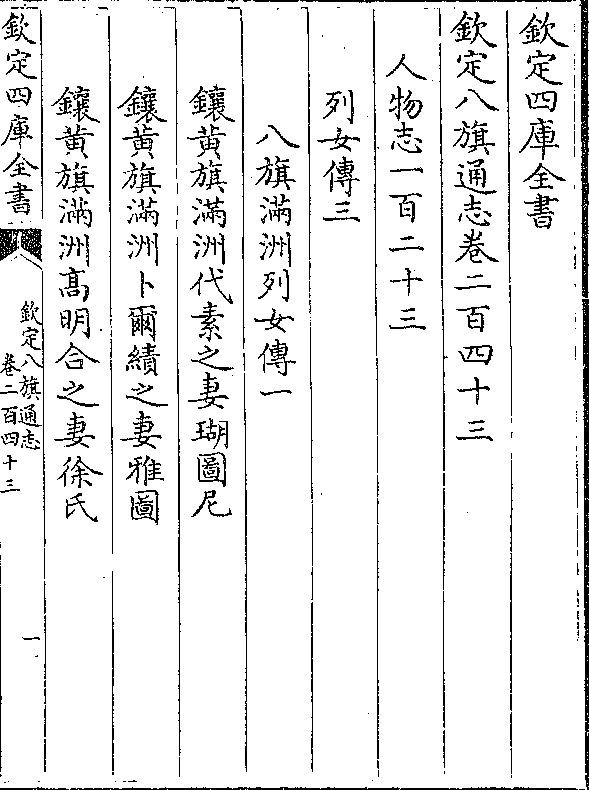 欽定四庫全書
欽定八旗通志卷二百四十三
人物志一百二十三
列女傳三
八旗滿洲列女傳一
鑲黃旗滿洲代素之妻瑚圖尼
鑲黃旗滿洲卜爾績之妻雅圖
鑲黃旗滿洲高明合之妻徐氏
欽定四庫全書
欽定八旗通志
卷二百四十三
一